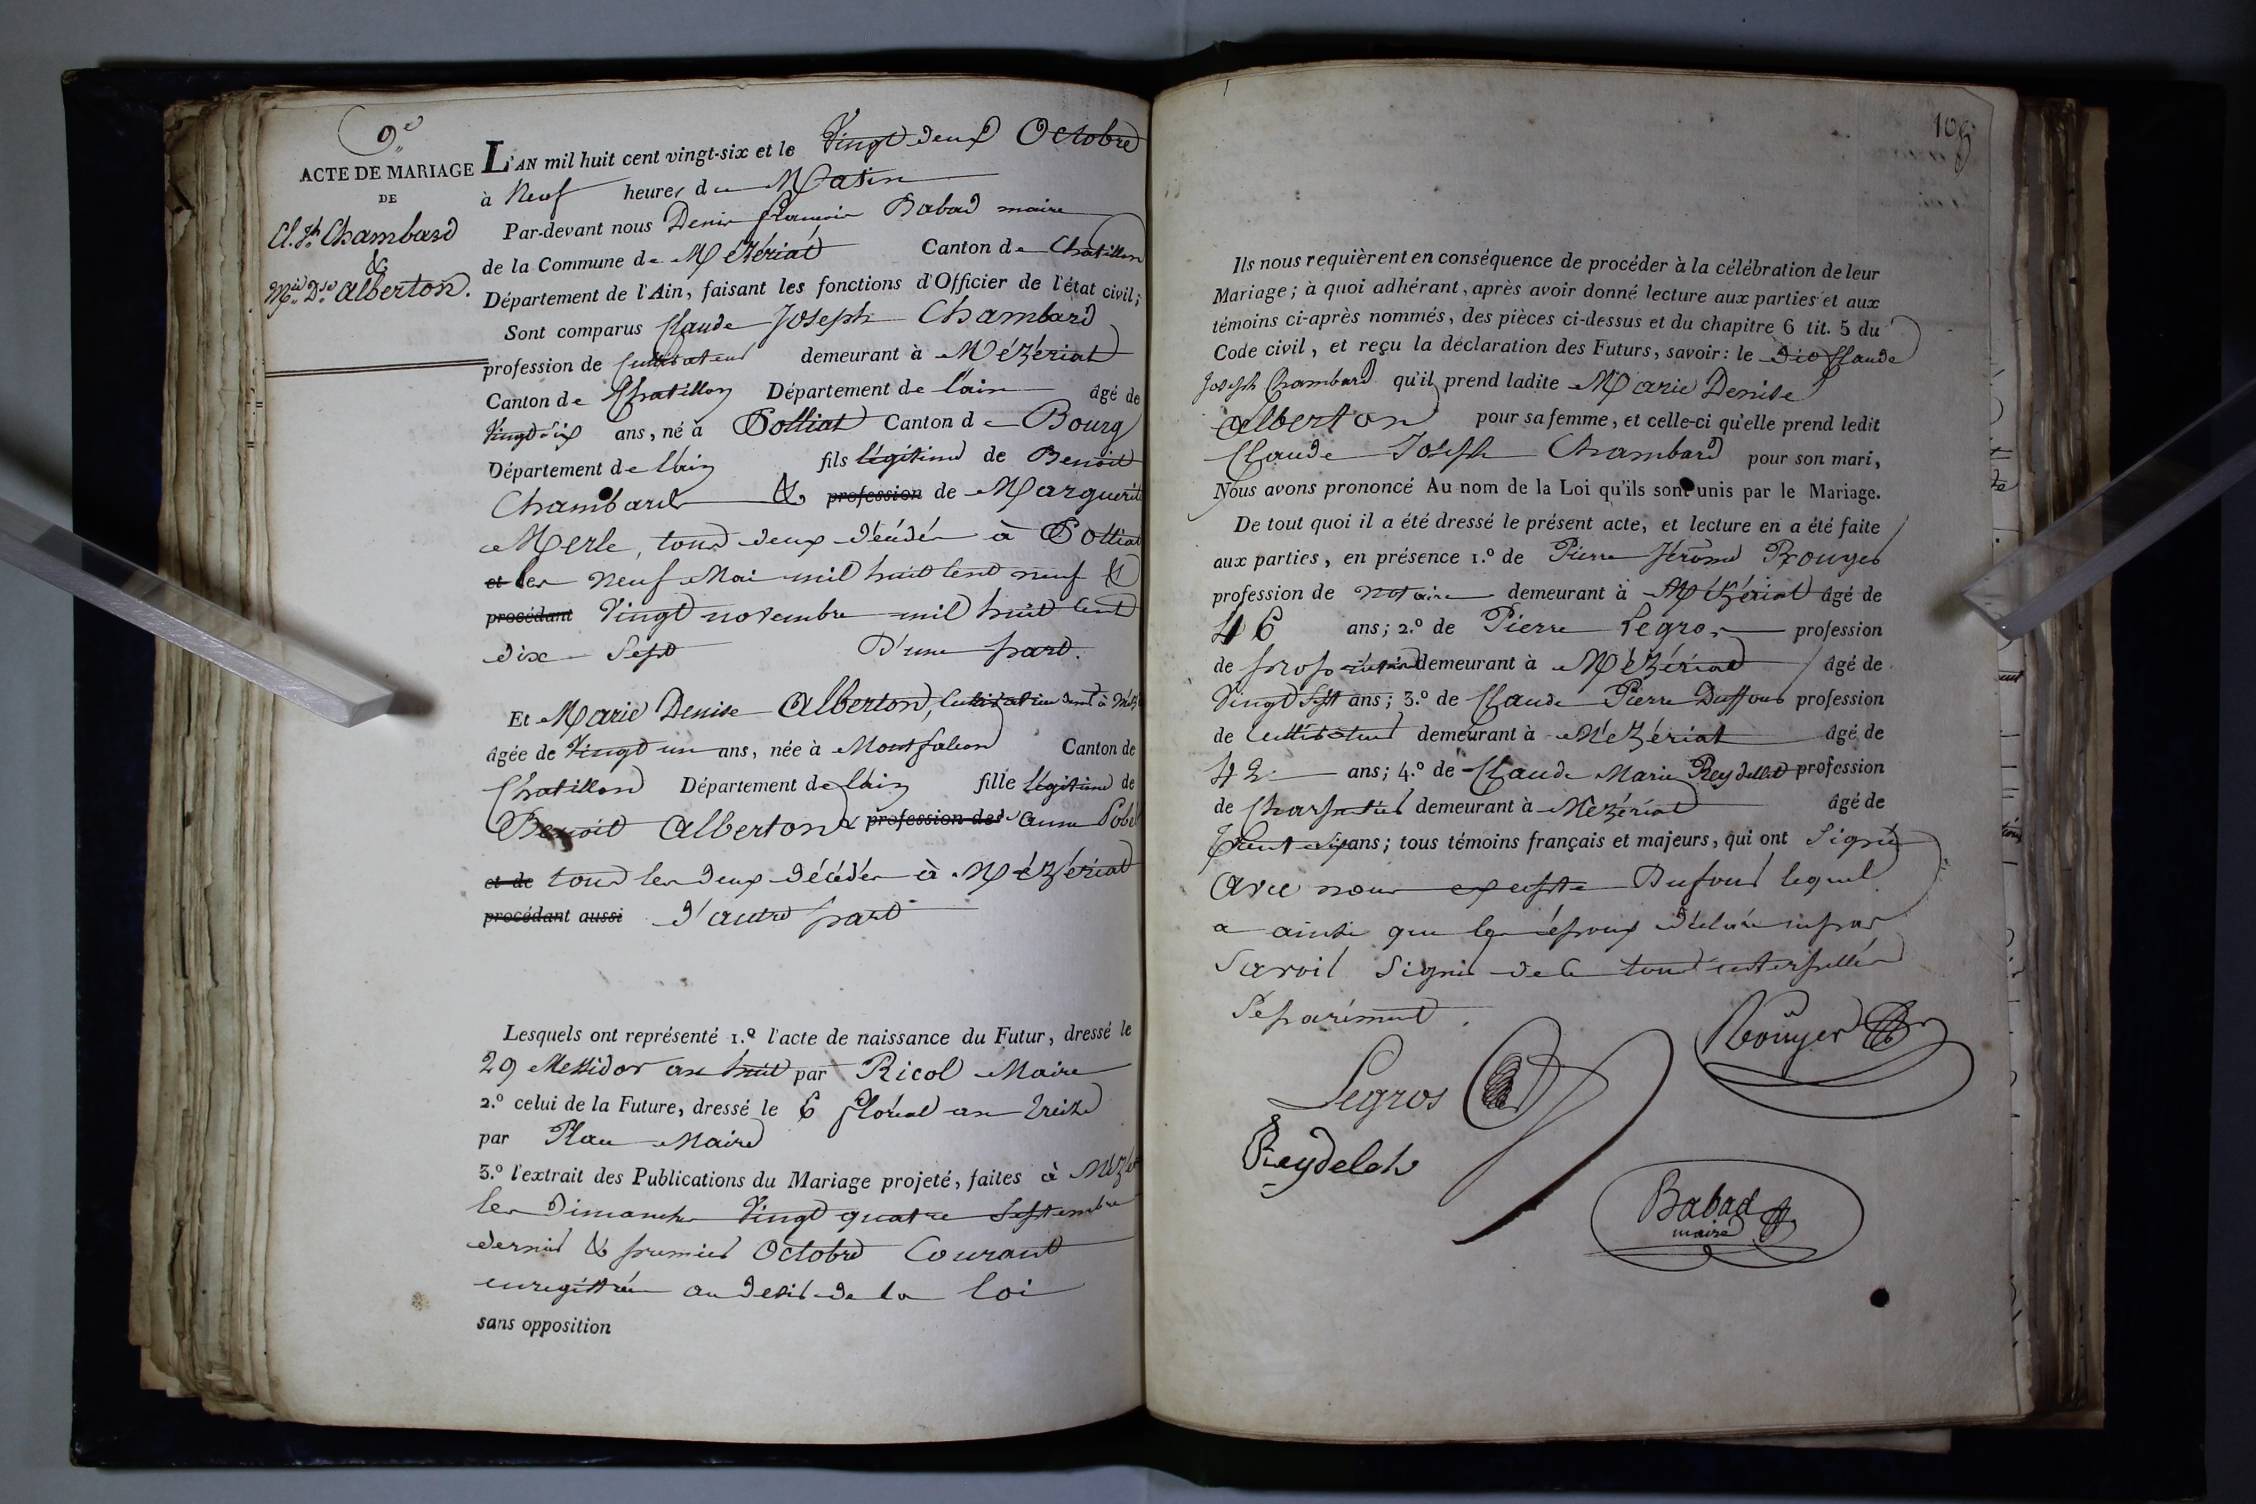 9e
ACTE DE MARIAGE
DE
Cl. Jh Chambard
&
Mie Dse Alberton.
L'AN mil huit cent vingt-six et le Vingt deux Octobre
à Neuf heures du Matin
Par-devant nous Denis François Babad maire
de la Commune de Mézériat Canton de Chatillon
Département de l'Ain, faisant les fonctions d'Officier de l'état civil;
Sont comparus Claude Joseph Chambard
profession de Cultivateur demeurant à Mézériat
Canton de Chatillon Département de l'ain âgé de
Vingt six ans, né à Polliat Canton de Bourg
Département de l'ain fils légitime de Benoit
Chambard & profession de Marguerit
Merle, tous deux décédés à Polliat
et les neuf Mai mil huit cent neuf &
procédant Vingt novembre mil huit cent
dix Sept D'une part.
Et Marie Denise Alberton, Cultivatrice demt à
âgée de Vingt un ans, née à Montfalcon Canton de
Chatillon Département de l'ain fille légitime de
Benoit Alberton & profession de d'anne
et de tous les deux décédés à Mézériat
procédant aussi d'autre part
Lesquels ont représenté 1.º l'acte de naissance du Futur, dressé le
29 Messidor an huit par Ricol Maire
2.º celui de la Future, dressé le 6 floréal an treize
par Maire
3.º l'extrait des Publications du Mariage projeté, faites à Mézt
les Dimanches Vingt quatre Septembre
dernier & premier Octobre Courant
enregistrées au desir de la Loi
sans opposition
109
Ils nous requièrent en conséquence de procéder à la célébration de leur
Mariage; à quoi adhérant, après avoir donné lecture aux parties et aux
témoins ci-après nommés, des pièces ci-dessus et du chapitre 6 tit. 5 du
Code civil, et reçu la déclaration des Futurs, savoir: le dit Claude
Joseph Chambard qu'il prend ladite Marie Denise
Alberton pour sa femme, et celle-ci qu'elle prend ledit
Claude Joseph Chambard pour son mari,
Nous avons prononcé Au nom de la Loi qu'ils sont unis par le Mariage.
De tout quoi il a été dressé le présent acte, et lecture en a été faite
aux parties, en présence 1.º de Pierre Jérôme Rouyer
profession de notaire demeurant à Mézériat âgé de
46 ans; 2.º de Pierre Legros profession
de demeurant à Mézériat âgé de
Vingt Sept ans; 3.º de Claude Pierre Duffour profession
de Cultivateur demeurant à Mézériat âgé de
42 ans; 4.º de Claude Marie Reydellet profession
de Charpentier demeurant à Mézériat âgé de
Trente six ans; tous témoins français et majeurs, qui ont Signé
avec nous excepté Dufour lequel
a ainsi que les époux déclaré ne pas
Savoir Signer de ce tous interpellés
Séparément.
Rouyer
Legros
Reydelet
Babad
maire